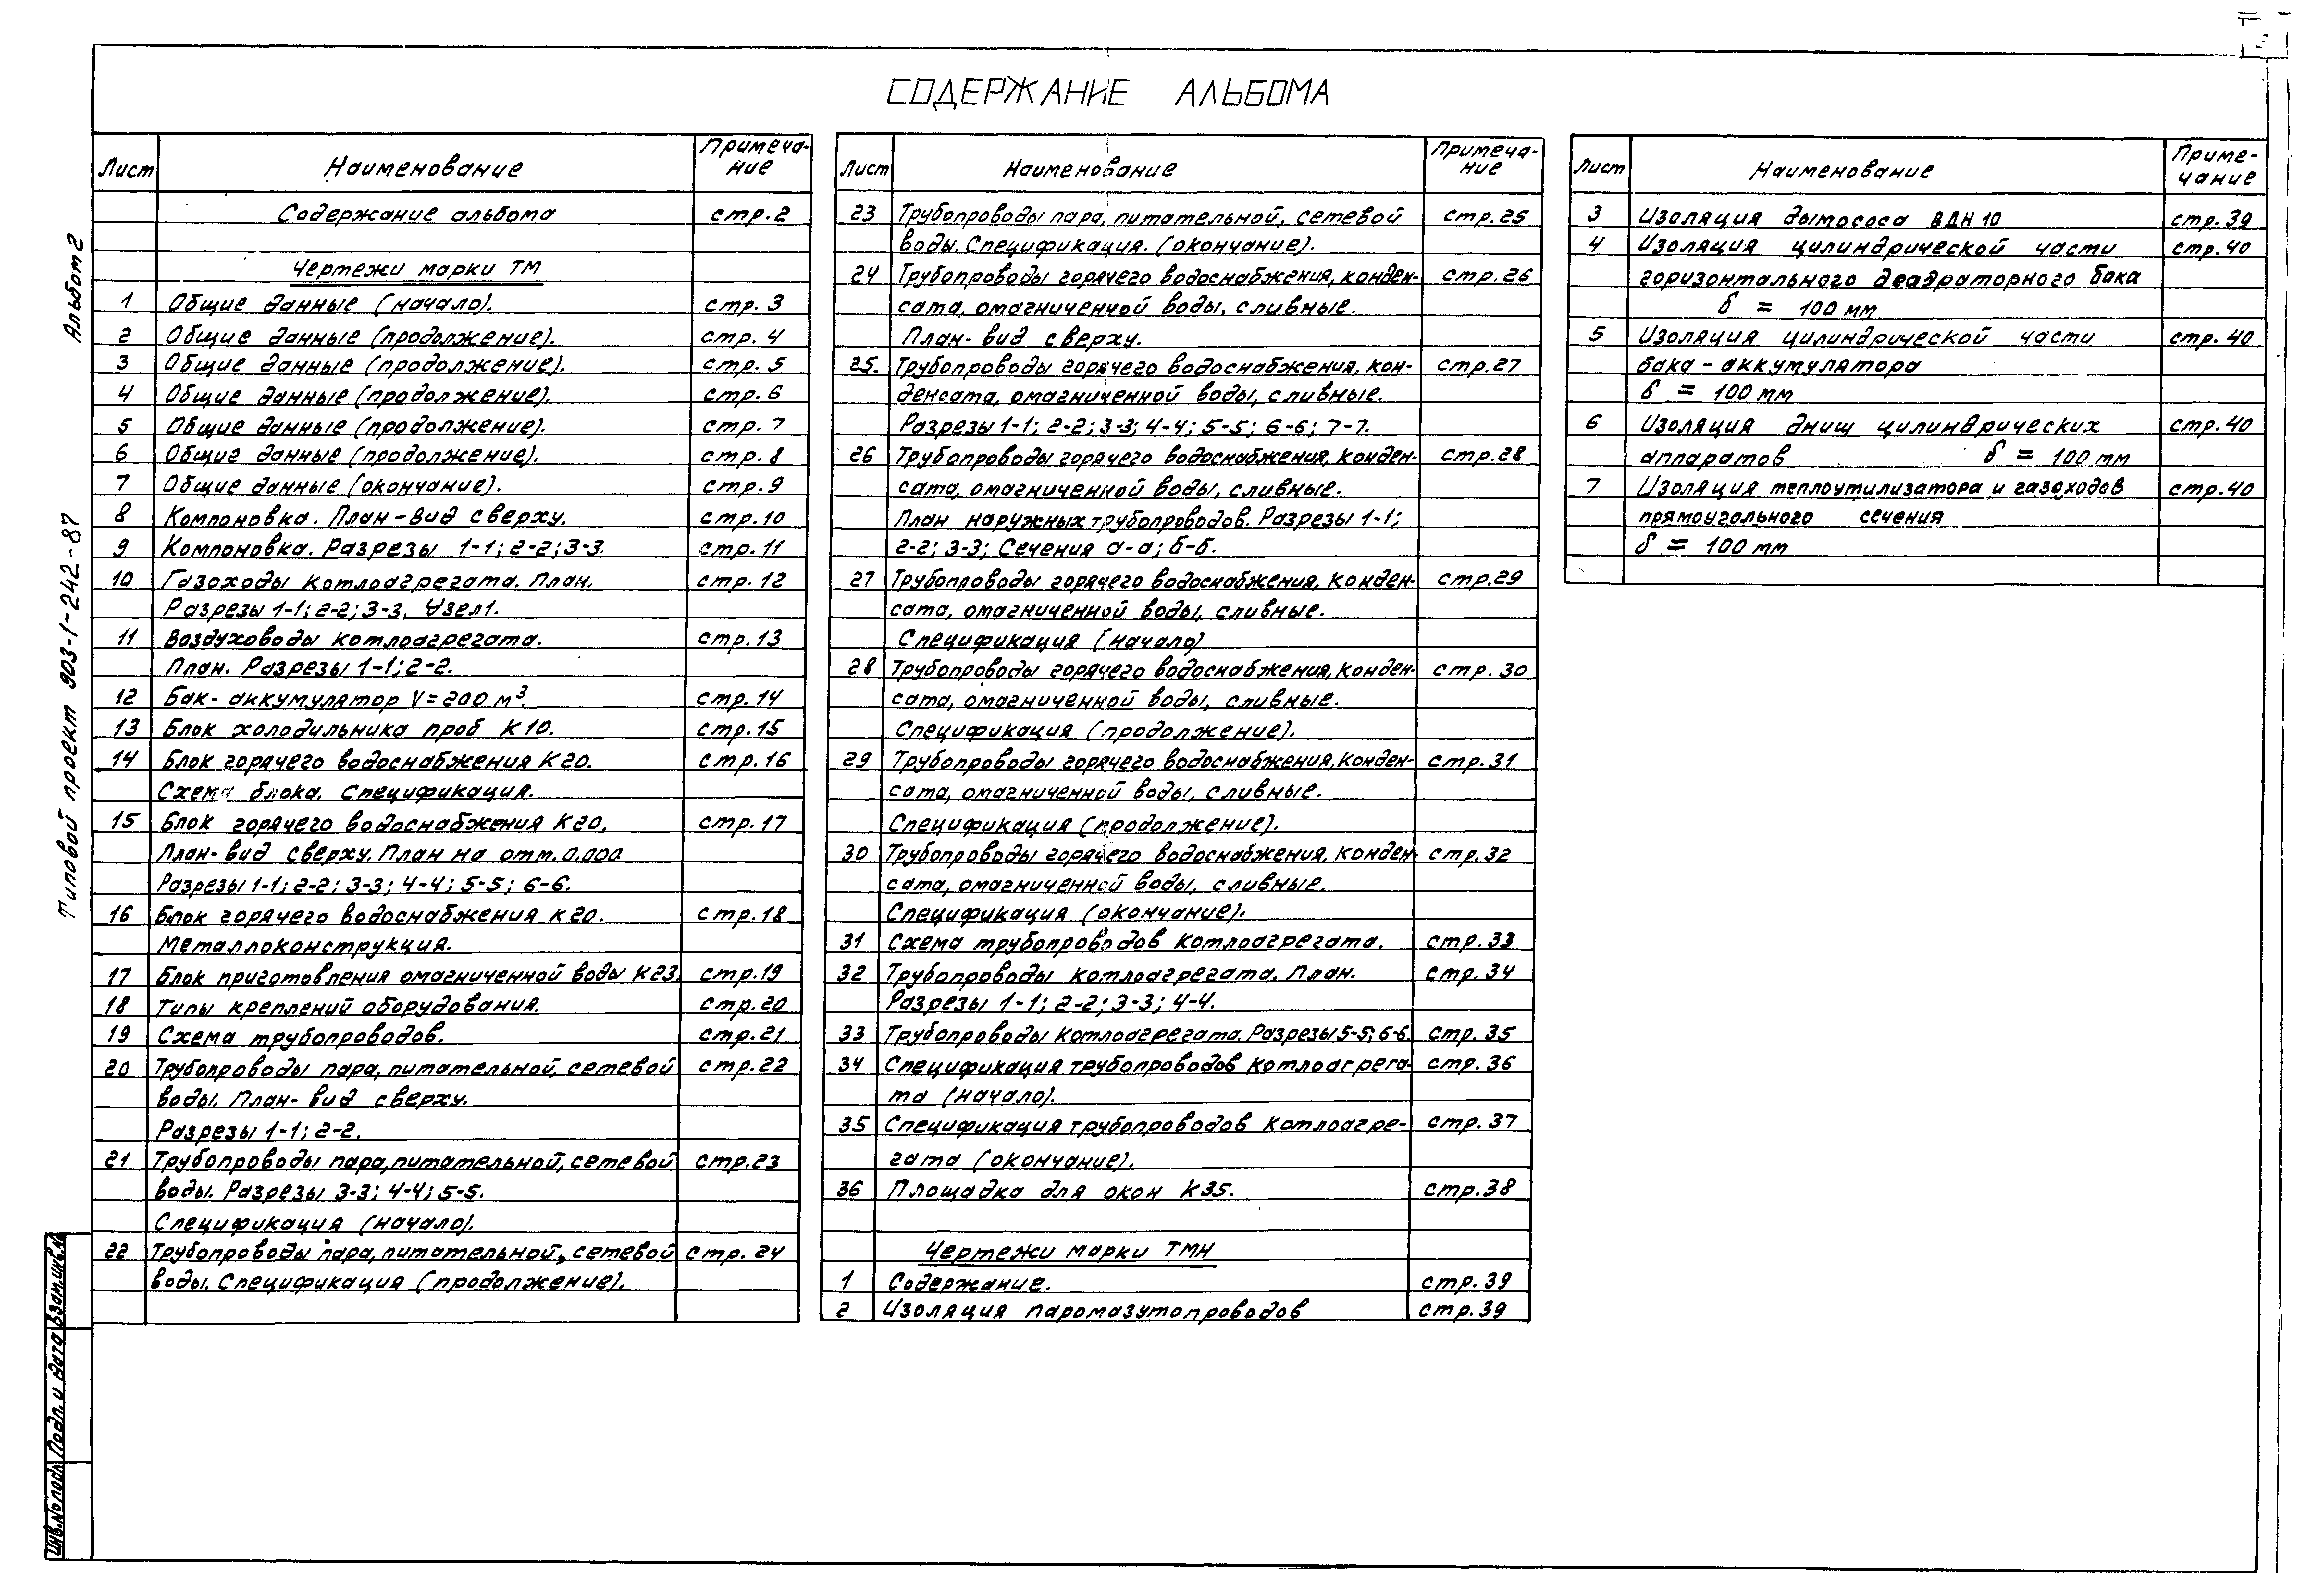 СОДЕРЖАНИЕ АЛЬБОМА
Типовой проект 903-1-242-87 Альбом 2
Лист Наименование Примеча-
ние
Содержание альбома стр.2
Чертежи марки ТМ
1 Общие данные (начало). стр. 3
2 Общие данные (продолжение). стр. 4
3 Общие данные (продолжение). стр. 5
4 Общие данные (продолжение). стр. 6
5 Общие данные (продолжение). стр. 7
6 Общие данные (продолжение). стр. 8
7 Общие данные (окончание). стр. 9
8 Компоновка. План-вид сверху. стр. 10
9 Компоновка. Разрезы 1-1; 2-2; 3-3. стр. 11
10 Газоходы котлоагрегата. План. стр. 12
Разрезы 1-1; 2-2; 3-3. Узел 1.
11 Воздуховоды котлоагрегата. стр. 13
План. Разрезы 1-1; 2-2.
12 Бак-аккумулятор V=200 м³. стр. 14
13 Блок холодильника проб К10. стр. 15
14 Блок горячего водоснабжения К20. стр. 16
Схема блока. Спецификация.
15 Блок горячего водоснабжения К20. стр. 17
План-вид сверху. План на отм. 0.000
Разрезы 1-1; 2-2; 3-3; 4-4; 5-5; 6-6.
16 Блок горячего водоснабжения К20. стр. 18
Металлоконструкция.
17 Блок приготовления омагниченной воды К23. стр. 19
18 Типы креплений оборудования. стр. 20
19 Схема трубопроводов. стр. 21
20 Трубопроводы пара, питательной, сетевой стр. 22
воды. План-вид сверху.
Разрезы 1-1; 2-2.
21 Трубопроводы пара, питательной, сетевой стр. 23
воды. Разрезы 3-3; 4-4; 5-5.
Спецификация (начало).
22 Трубопроводы пара, питательной, сетевой стр. 24
воды. Спецификация (продолжение).
Лист Наименование Примеча-
ние
23 Трубопроводы пара, питательной, сетевой стр. 25
воды. Спецификация. (окончание).
24 Трубопроводы горячего водоснабжения, конден- стр. 26
сата, омагниченной воды, сливные.
План-вид сверху.
25. Трубопроводы горячего водоснабжения, кон- стр. 27
денсата, омагниченной воды, сливные.
Разрезы 1-1; 2-2; 3-3; 4-4; 5-5; 6-6; 7-7.
26 Трубопроводы горячего водоснабжения, конден- стр. 28
сата, омагниченной воды, сливные.
План наружных трубопроводов. Разрезы 1-1;
2-2; 3-3; Сечения а-а; б-б.
27 Трубопроводы горячего водоснабжения, конден- стр. 29
сата, омагниченной воды, сливные.
Спецификация (начало)
28 Трубопроводы горячего водоснабжения, конден- стр. 30
сата, омагниченной воды, сливные.
Спецификация (продолжение).
29 Трубопроводы горячего водоснабжения, конден- стр. 31
сата, омагниченной воды, сливные.
Спецификация (продолжение).
30 Трубопроводы горячего водоснабжения, конден- стр. 32
сата, омагниченной воды, сливные.
Спецификация (окончание).
31 Схема трубопроводов котлоагрегата. стр. 33
32 Трубопроводы котлоагрегата. План. стр. 34
Разрезы 1-1; 2-2; 3-3; 4-4.
33 Трубопроводы котлоагрегата. Разрезы 5-5; 6-6. стр. 35
34 Спецификация трубопроводов котлоагрега- стр. 36
та (начало).
35 Спецификация трубопроводов котлоагре- стр. 37
гата (окончание).
36 Площадка для окон К35. стр. 38
Чертежи марки ТМН
1 Содержание. стр. 39
2 Изоляция паромазутопроводов стр. 39
Лист Наименование Приме-
чание
3 Изоляция дымососа ВДН 10 стр. 39
4 Изоляция цилиндрической части стр. 40
горизонтального деаэраторного бака
δ = 100 мм
5 Изоляция цилиндрической части стр. 40
бака-аккумулятора
δ = 100 мм
6 Изоляция днищ цилиндрических стр. 40
аппаратов δ = 100 мм
7 Изоляция теплоутилизатора и газоходов стр. 40
прямоугольного сечения
δ = 100 мм
Инв.№подл Подп. и дата Взам.инв.№